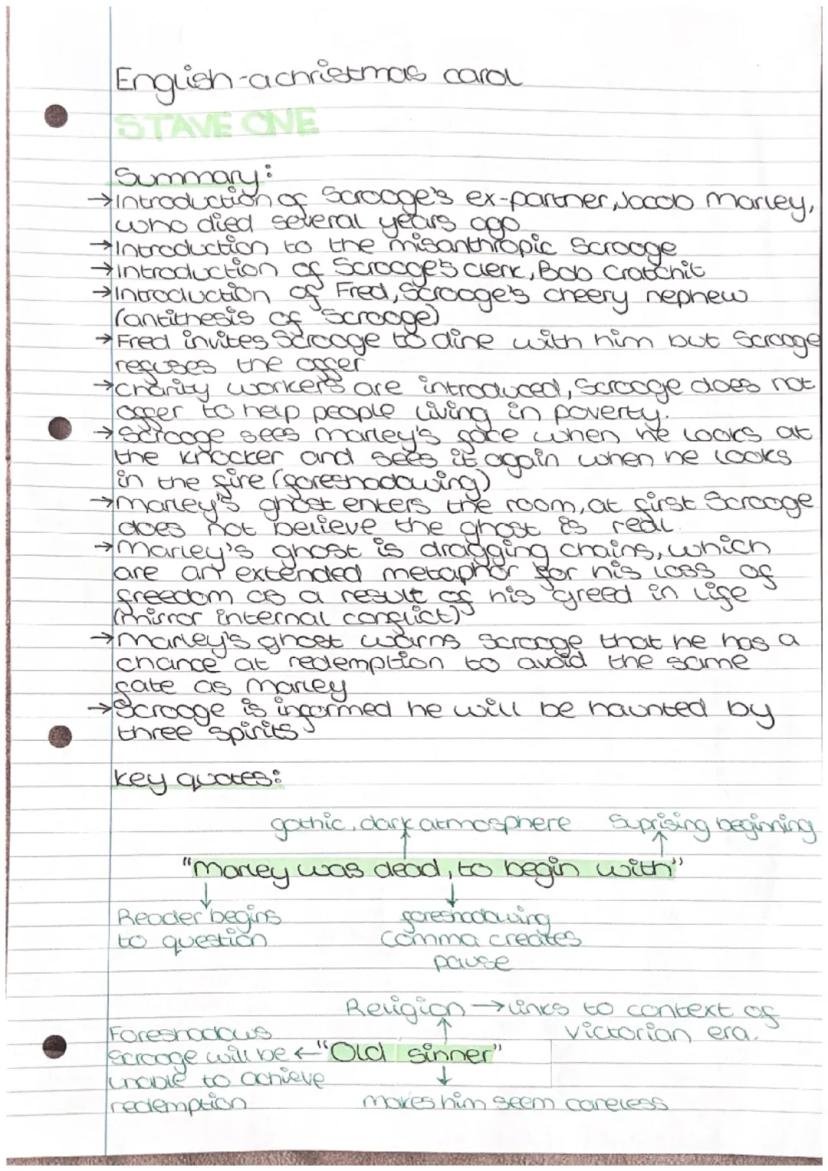 English - a christmas carol
STAVE ONE
Summary:
→Introduction of Scrooge's ex-partner, Jacob Marley,
who died several years ago
→Introduction to the misanthropic Scrooge
→Introduction of Scrooge's clerk, Bob Cratchit
→Introduction of Fred, Scrooge's cheery nephew
(antithesis of Scrooge)
→Fred invites Scrooge to dine with him but Scrooge
refuses the offer
→charity workers are introduced, Scrooge does not
offer to help people living in poverty.
→Scrooge sees marley's face when he looks at
the knocker and sees it again when he looks
in the fire (foreshadowing)
→marley's ghost enters the room, at first Scrooge
does not believe the ghost is real.
→marley's ghost is dragging chains, which
are an extended metaphor for his loss of
freedom as a result of his greed in life
(mirror internal conflict)
→marley's ghost warns Scrooge that he has a
chance at redemption to avoid the same
fate as marley
→Scrooge is informed he will be haunted by
three spirits
key quotes:
gothic, dark atmosphere Suprising beginning
"Marley was dead, to begin with"
Reader begins
to question
foreshadowing
comma creates
pause
Religion → links to context of
victorian era.
Foreshadows
Scrooge will be ← "Old sinner"
unable to achieve
redemption
makes him seem careless